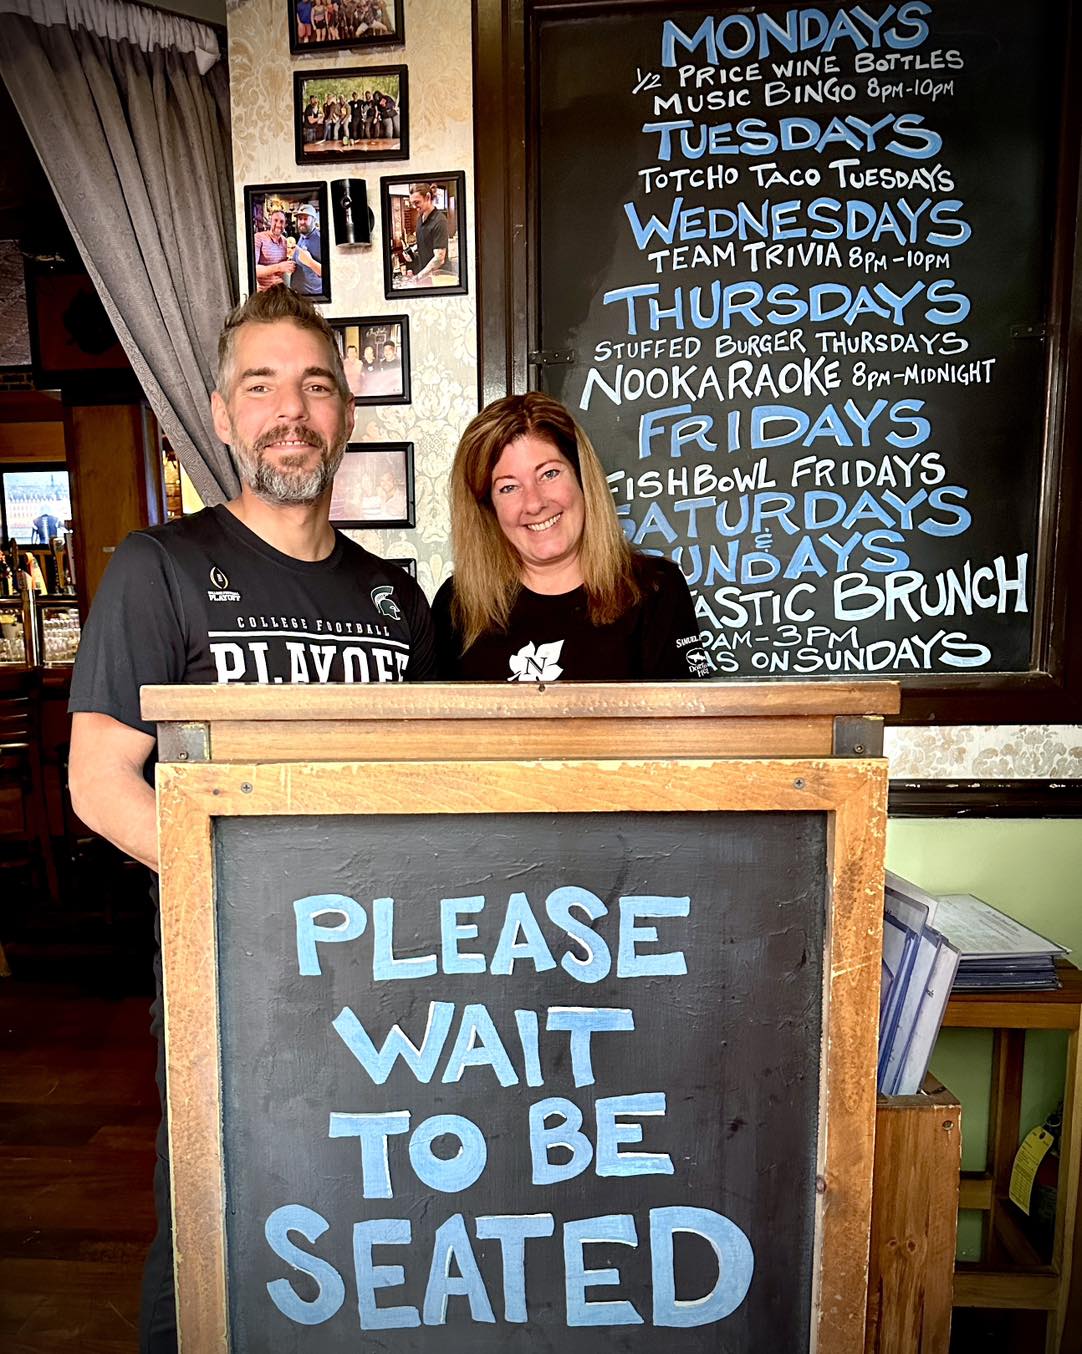 MONDAYS
1/2 PRICE WINE BOTTLES
MUSIC BINGO 8PM-10PM
TUESDAYS
TOTCHO TACO TUESDAYS
WEDNESDAYS
TEAM TRIVIA 8PM-10PM
THURSDAYS
STUFFED BURGER THURSDAYS
NOOKARAOKE 8PM-MIDNIGHT
FRIDAYS
FISHBOWL FRIDAYS
SATURDAYS
&
SUNDAYS
TASTIC BRUNCH
AM-3PM
S ON SUNDAYS
COLLEGE FOOTBALL
PLAYOFF
PLAYOFF
N
SAMUEL
PLEASE
WAIT
TO BE
SEATED